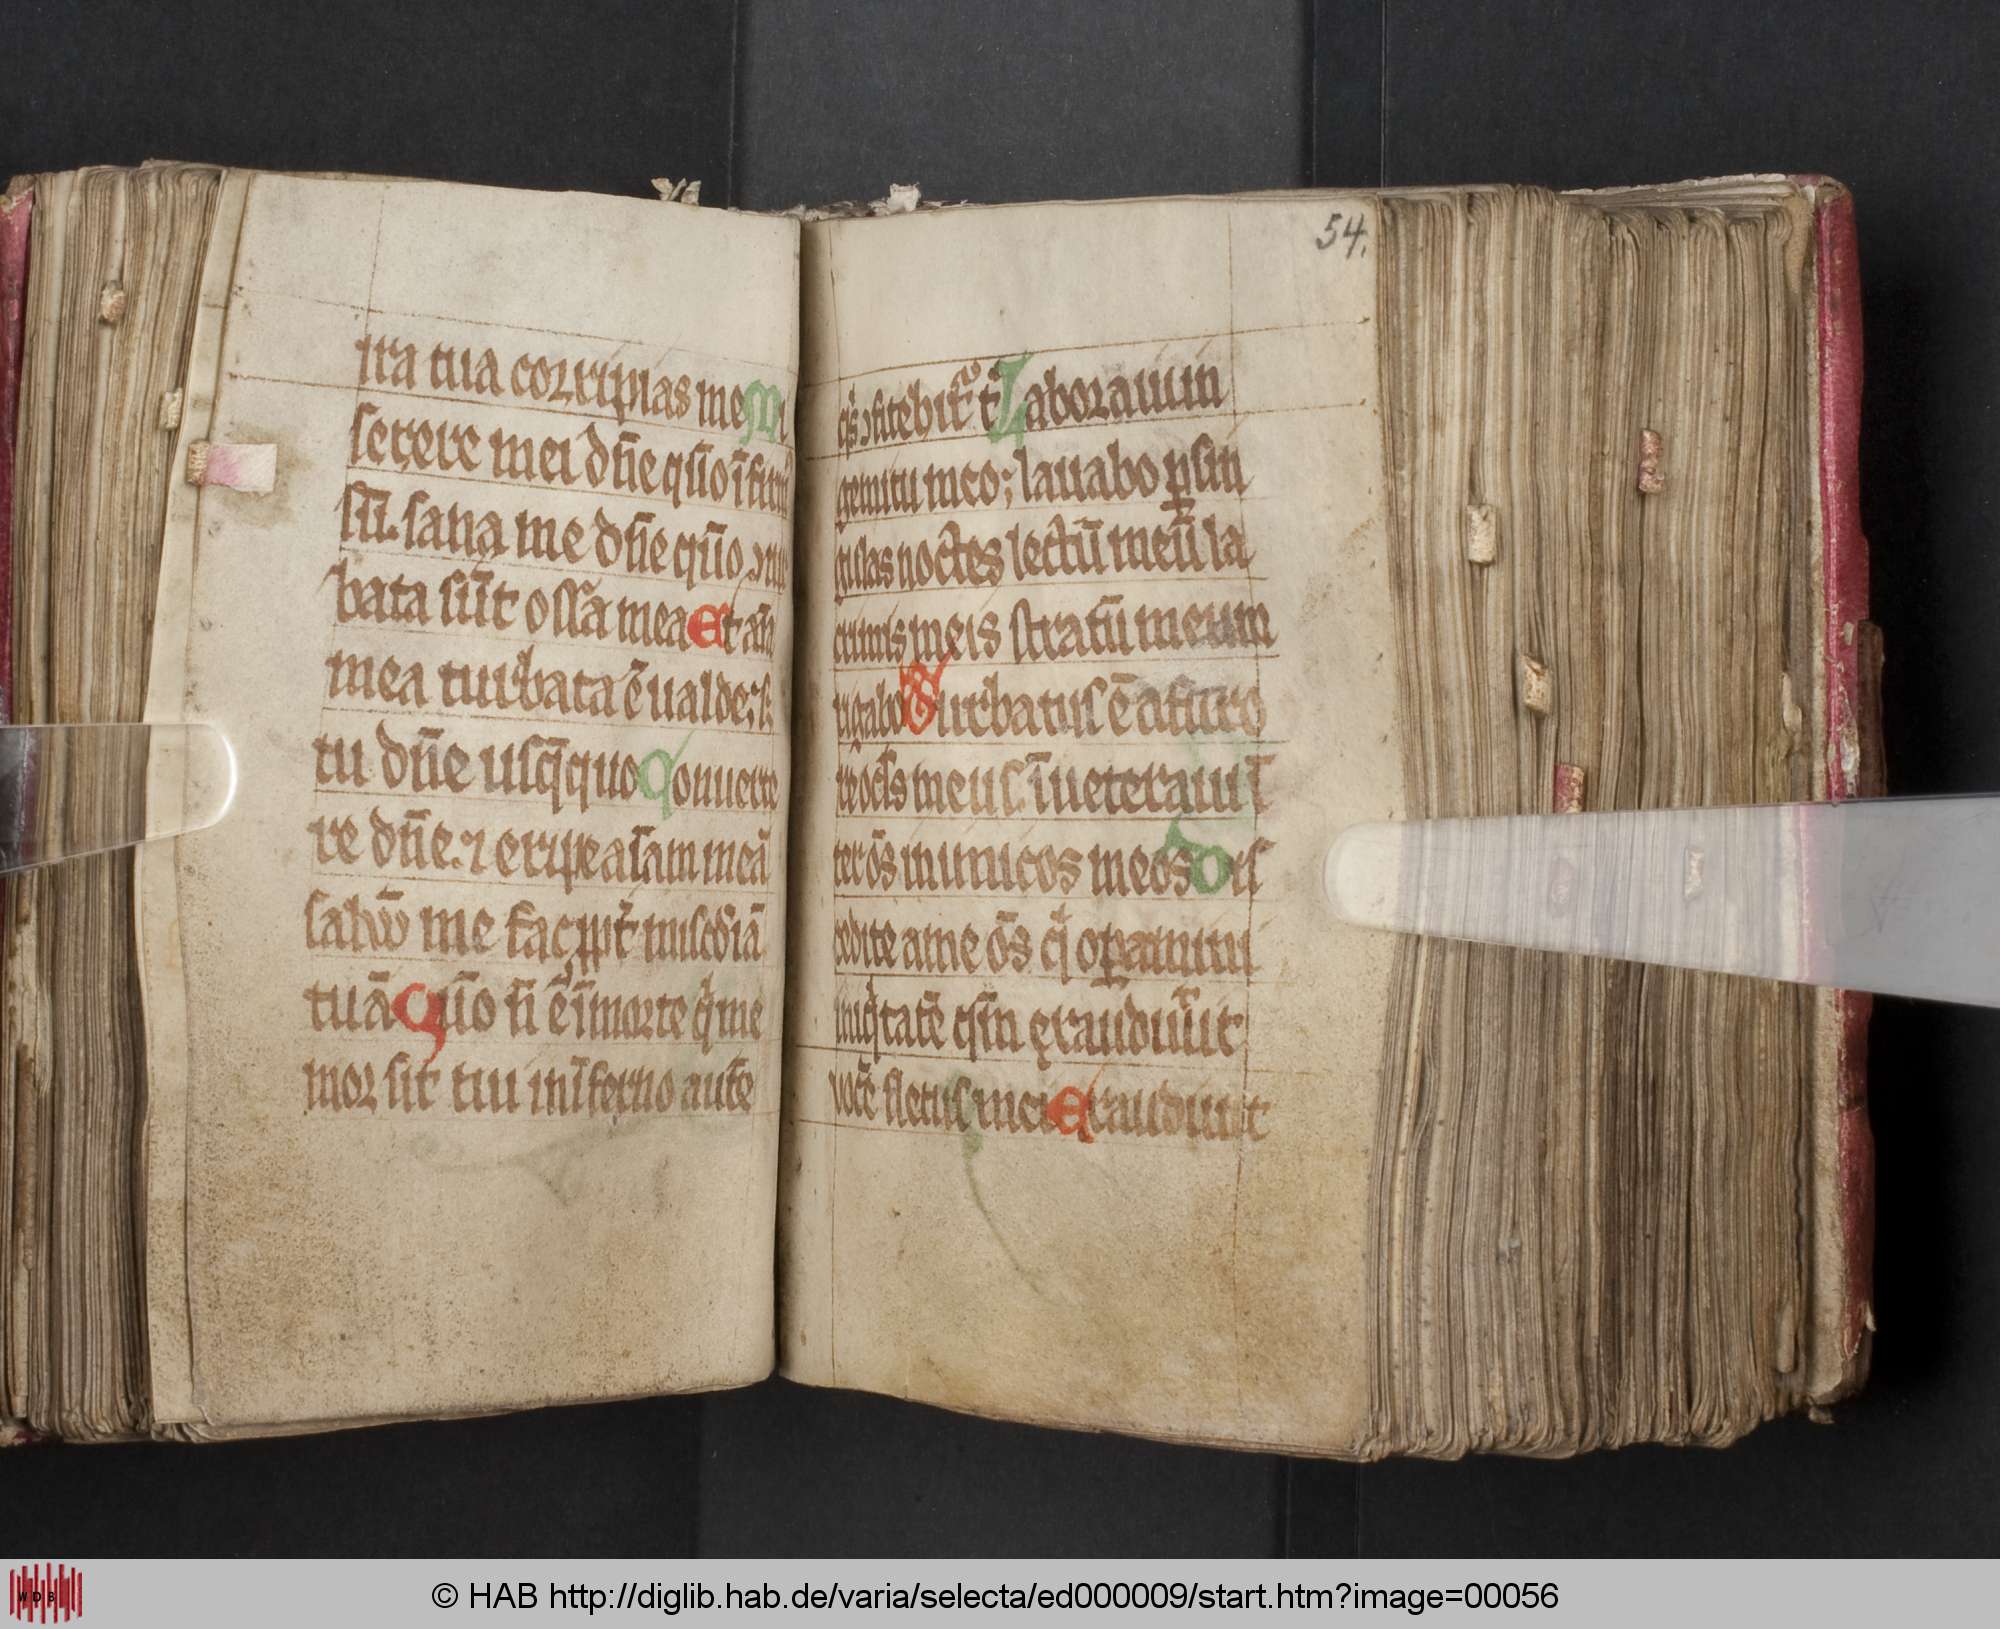 ira tua corripias me Mi
serere mei dn̄e qm̄o ī firm̄
sū. sana me dn̄e qm̄o ↄtur
bata sūt ossa mea Et aīa
mea turbata ē ualde; s;
tu dn̄e usq̄quo Conuerte
re dn̄e. ⁊ eripe aīam meā
saluū me fac ꝓpt̄ miscdiā
tuā Qm̄o n̄ ē ī morte q̄ me
mor sit tui in īferno autē
54.
q̄s ↄfitebit̄ t̄ Laboraui in
gemitu meo; lauabo ꝑ sin
gulas noctes lectū meū la
crimis meis stratū meum
rigabo Turbatus ē a furo
re ocls meus. īueteraui ī
ter ōs inimicos meos Dis
cedite a me ōs q̄ oꝑamini
iniq̄tatē qm̄ exaudiuit
vocē fletus mei Exaudiuit
WDB
© HAB http://diglib.hab.de/varia/selecta/ed000009/start.htm?image=00056